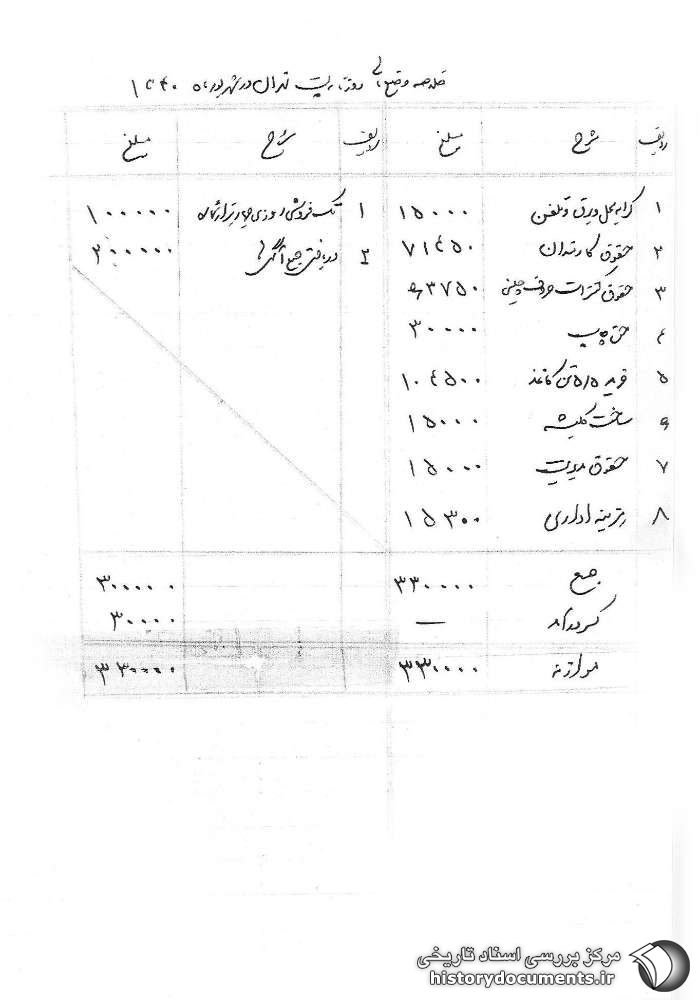 خلاصه وضع مالی روزنامه پست تهران در شهریور ماه ۱۳۴۰
ردیف شرح مبلغ ردیف شرح مبلغ
۱ کرایه محل و برق و تلفن ۱۵۰۰۰ ۱ تک فروشی روزی چهار هزار شماره ۱۰۰۰۰۰
۲ حقوق کارمندان ۷۱۴۵۰ ۲ دریافتی جمع آگهی ها ۲۰۰۰۰۰
۳ حقوق کنترات حروف چینی ۶۳۷۵۰
۴ حق چاپ ۳۰۰۰۰
۵ خرید تن کاغذ ۱۰۴۵۰۰
۶ ساخت کلیشه ۱۵۰۰۰
۷ حقوق مدیریت ۱۵۰۰۰
۸ هزینه اداری ۱۵۳۰۰
جمع ۳۳۰۰۰۰ ۳۰۰۰۰۰
کسر درآمد — ۳۰۰۰۰
موازنه ۳۳۰۰۰۰ ۳۳۰۰۰۰
مرکز بررسی اسناد تاریخی
historydocuments.ir